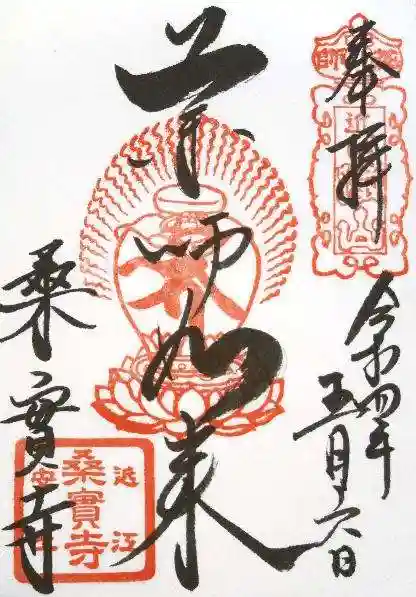 奉拝
令和四年
五月六日
薬師如来
桑實寺
近江
桑實寺